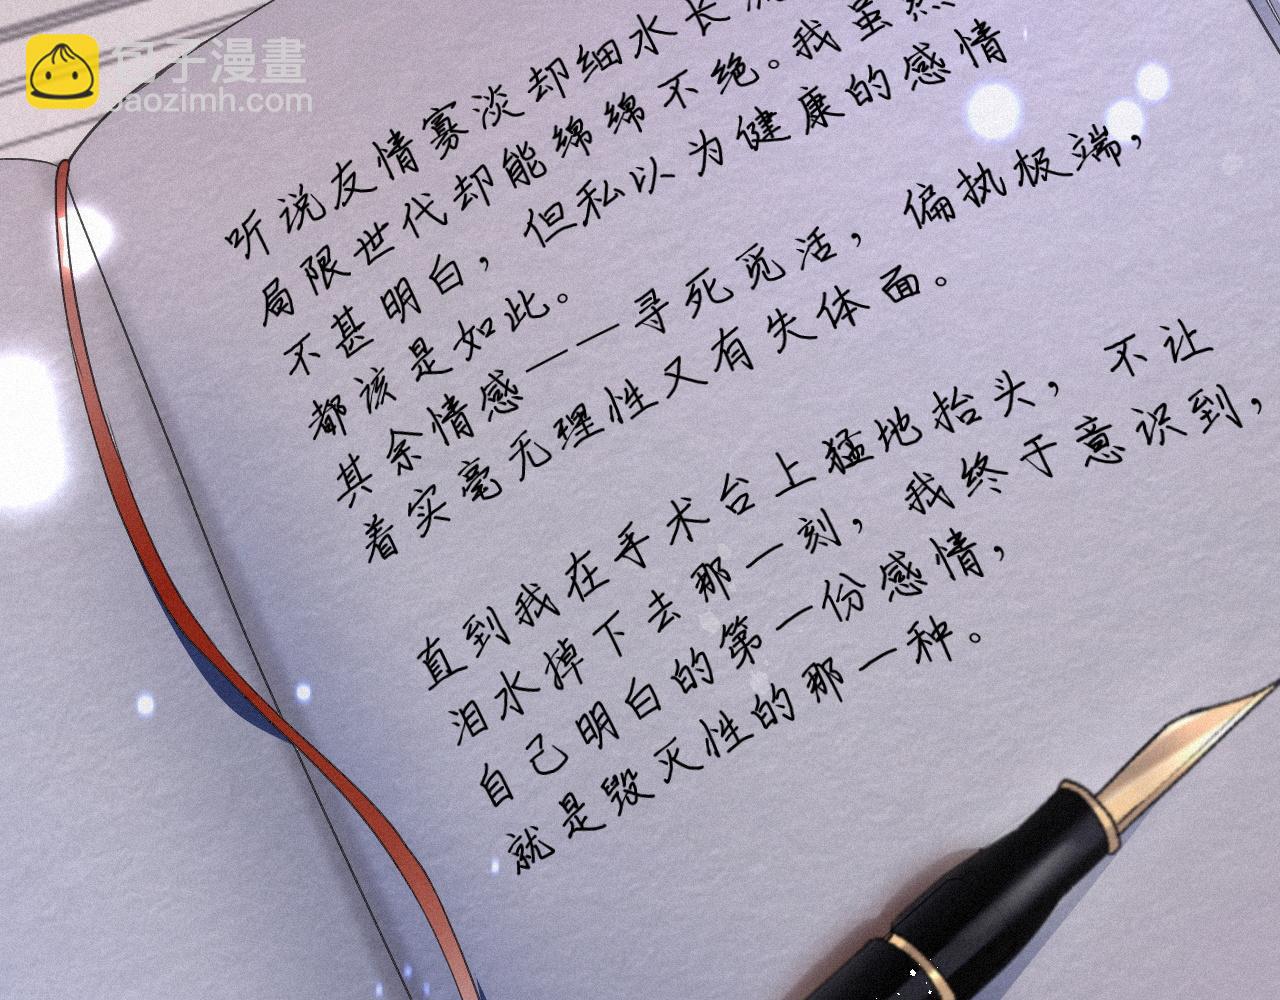 包子漫畫
baozimh.com
听说友情寡淡却细水长流
局限世代却能绵绵不绝。我虽然
不甚明白，但私以为健康的感情
都该是如此。
其余情感——寻死觅活，偏执极端，
着实毫无理性又有失体面。
直到我在手术台上猛地抬头，不让
泪水掉下去那一刻，我终于意识到，
自己明白的第一份感情，
就是毁灭性的那一种。